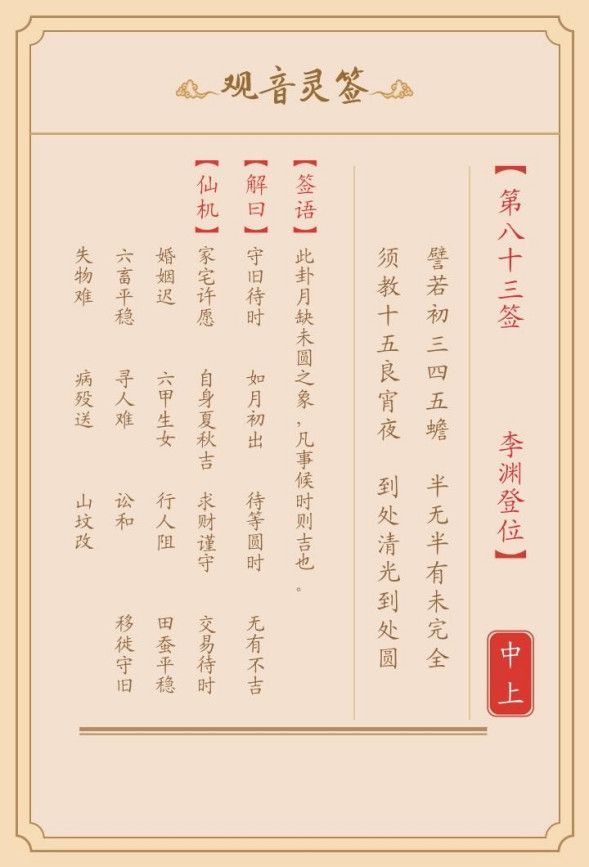 观音灵签
【第八十三签 李渊登位】
中上
譬若初三四五蟾 半无半有未完全
须教十五良宵夜 到处清光到处圆
【签语】此卦月缺未圆之象,凡事候时则吉也。
【解曰】守旧待时 如月初出 待等圆时 无有不吉
【仙机】家宅许愿 自身夏秋吉 求财谨守 交易待时
婚姻迟 六甲生女 行人阻 田蚕平稳
六畜平稳 寻人难 讼和 移徙守旧
失物难 病殁送 山坟改